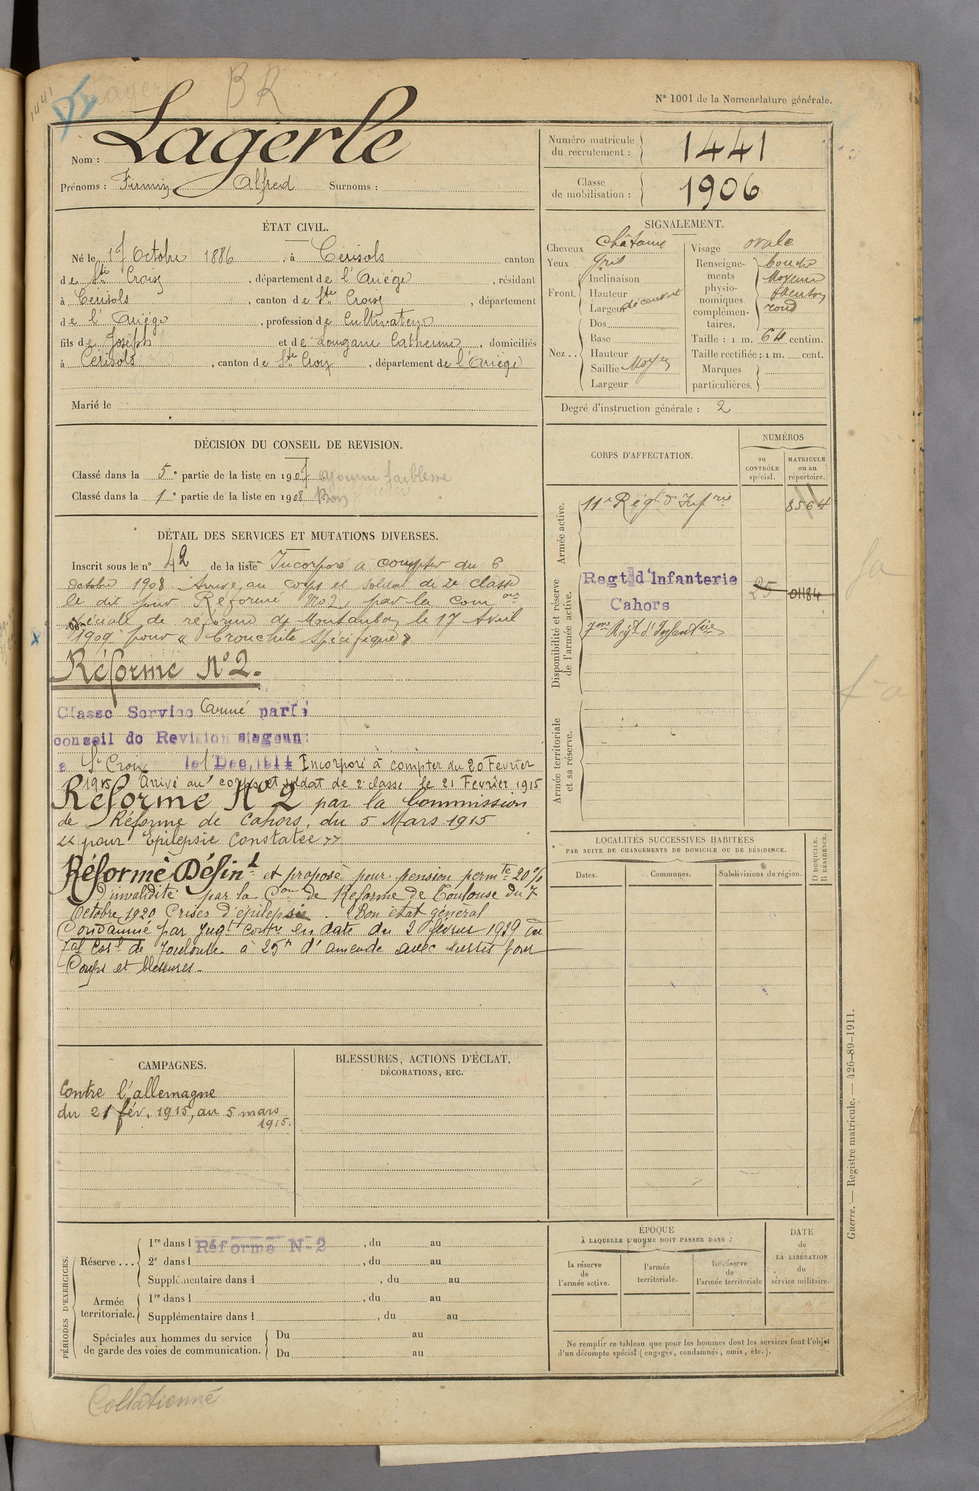 BR
N° 1001 de la Nomenclature générale.
Nom : Lagerle
Prénoms : Firmin Alfred Surnoms :
Numéro matricule du recrutement : 1441
Classe de mobilisation : 1906
ÉTAT CIVIL.
Né le 17 Octobre 1886, à Cérisols canton
de Ste Croix, département de l'Ariège, résidant
à Cérisols, canton de Ste Croix, département
de l'Ariège, profession de Cultivateur
fils de Joseph et de Catherine, domiciliés
à Cérisols, canton de Ste Croix, département de l'Ariège
Marié le
SIGNALEMENT.
Cheveux châtains
Yeux gris
Front Inclinaison
Hauteur
Largeur découvert
Nez Dos
Base
Hauteur
Saillie Moyen
Largeur
Visage ovale
Renseignements physionomiques complémentaires. bouche
Moyenne
Menton
rond
Taille : 1 m. 64 centim.
Taille rectifiée : 1 m. cent.
Marques particulières.
Degré d'instruction générale : 2
DÉCISION DU CONSEIL DE REVISION.
Classé dans la 5e partie de la liste en 1907 ajourné faiblesse
Classé dans la 1e partie de la liste en 1908 Bon
CORPS D'AFFECTATION.
NUMÉROS
au CONTRÔLE spécial.
MATRICULE ou au répertoire.
Armée active.
11e Régt d'Infrie 8564
Disponibilité et réserve de l'armée active.
Regt d'Infanterie 25 01184
Cahors
7me Régt d'Infanterie
Armée territoriale et sa réserve.
DÉTAIL DES SERVICES ET MUTATIONS DIVERSES.
Inscrit sous le n° 42 de la liste Incorporé à compter du 6
octobre 1908 Arrivé au corps et soldat de 2e classe
le dit jour Réformé No2, par la com on
spéciale de réforme de Montauban le 17 Avril
1909 pour « Bronchite spécifique »
Réformé N°2.
Classé Service Armé par le
conseil de Revision siégeant
à St Croix le 1 Dec. 1914 Incorporé à compter du 20 Février
1915 Arrivé au corps et soldat de 2 classe le 21 Février 1915
Réformé N° 2 par la Commission
de Réforme de Cahors, du 5 Mars 1915
« pour Epilepsie Constatée »
Réformé Défint et proposé pour pension permte 20%
d'invalidité par la Con de Réforme de Toulouse du 7
Octobre 1920 Crises d'épilepsie. Bon état général
Condamné par Jugt contre en date du 2 février 1929 du
Tal Corl de Toulouse à 25 fr d'amende avec sursis pour
Coups et blessures.
LOCALITÉS SUCCESSIVES HABITÉES
PAR SUITE DE CHANGEMENTS DE DOMICILE OU DE RÉSIDENCE.
Dates. Communes. Subdivisions de région. D. DOMICILE. R. RÉSIDENCE.
CAMPAGNES.
Contre l'allemagne
du 21 fév. 1915, au 5 mars
1915.
BLESSURES, ACTIONS D'ÉCLAT,
DÉCORATIONS, ETC.
PÉRIODES D'EXERCICES.
Réserve ... 1re dans l Réformé N° 2, du au
2e dans l , du au
Supplémentaire dans l , du au
Armée territoriale. 1re dans l , du au
Supplémentaire dans l , du au
Spéciales aux hommes du service de garde des voies de communication. Du au
Du au
ÉPOQUE
À LAQUELLE L'HOMME DOIT PASSER DANS :
la réserve de l'armée active.
l'armée territoriale.
la réserve de l'armée territoriale
DATE de LA LIBÉRATION du service militaire.
Ne remplir ce tableau que pour les hommes dont les services font l'objet
d'un décompte spécial (engagés, condamnés, omis, etc.).
Guerre. — Registre matricule. — 426-89-1911.
Collationné